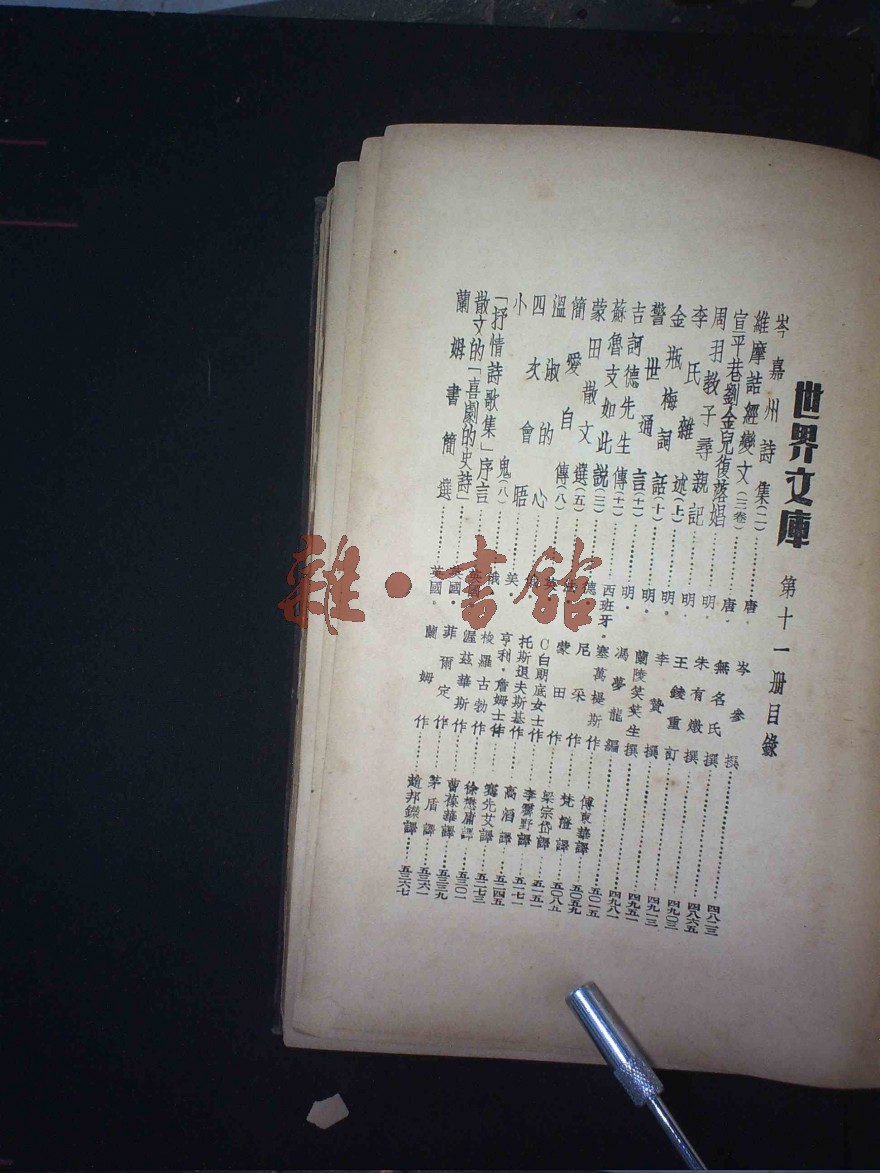 世界文庫 第十一册目錄
岑嘉州詩集(二)……唐·岑參撰……四八二三
維摩詰經變文(三卷)……唐·無名氏撰……四八六五
宣平巷劉金兒復落娼……明·朱有燉撰……四九〇三
周羽教子尋親記……明·王錂重訂……四九一三
李氏雜述(上)……明·李贄撰……四九五一
金瓶梅詞話(十)……明·蘭陵笑笑生撰……四九八一
警世通言(十一)……明·馮夢龍編……五〇一五
吉訶德先生傳(十一)……西班牙·塞萬提斯作 傅東華譯……五〇五九
蘇魯支如此說(二)……德·尼采作 梵澄譯……五〇八五
蒙田散文選(五)……法·蒙田作 梁宗岱譯……五一五一
簡愛自傳(八)……英·C白朗底女士作 李霽野譯……五一七一
溫淑的心……俄·托斯退夫斯基作 高滔譯……五二四五
四次會晤……美·亨利·詹姆士作 蹇先艾譯……五二七三
小鬼(八)……俄·梭羅古勃作 徐懋庸譯……五三〇一
「抒情詩歌集」序言……英國·渥兹華斯作 曹葆華譯……五三三九
散文的「喜劇的史詩」……英國·菲爾定作 茅盾譯……五三六一
蘭姆書簡選……英國·蘭姆作 趙邦鑅譯……五三六七
雜·書館